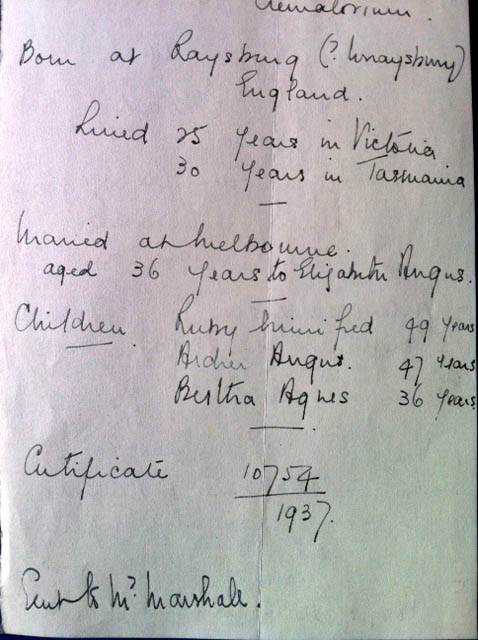 Crematorium.
Born at Raysburg (? Wraysbury)
England.
Lived 25 years in Victoria
30 years in Tasmania
Married at Melbourne.
aged 36 years to Elizabeth Angus.
Children Ruby Winifred 49 years
Archer Angus. 47 years
Bertha Agnes 36 years
Certificate 10754
1937.
Sent to Mr Marshall.